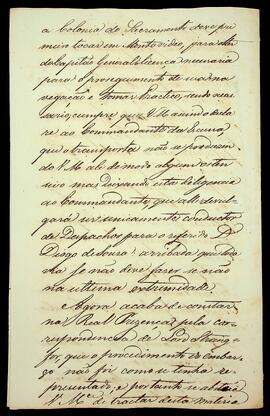 a Colonia do Sacramento deve pri
meiro tocar em Montevideo, para obter
do Capitão General a licença necessaria
para o proseguimento de sua na
vegação e tomar Practico, sendo neces
sario, cumpre que V. M. ainda decla
re ao Commandante da Escuna,
que o transporta não se proclamem
de V. M. al de modo algum osten
sivo mas deixando esta diligencia
ao Commandante, que alli che
gará ser unicamente conductor
de Despachos para o referido D.
Diogo de Souza: arribada que toda
via se não deve fazer se não
na ultima extremidade.
Agora acaba de constar
na Real Prezença pela cor
respondencia de Lord Strang
ford, que o procedimento de Embar
go não foi como se tinha re
presentado, e portanto se absterá
V. M.ce de tractar desta materia